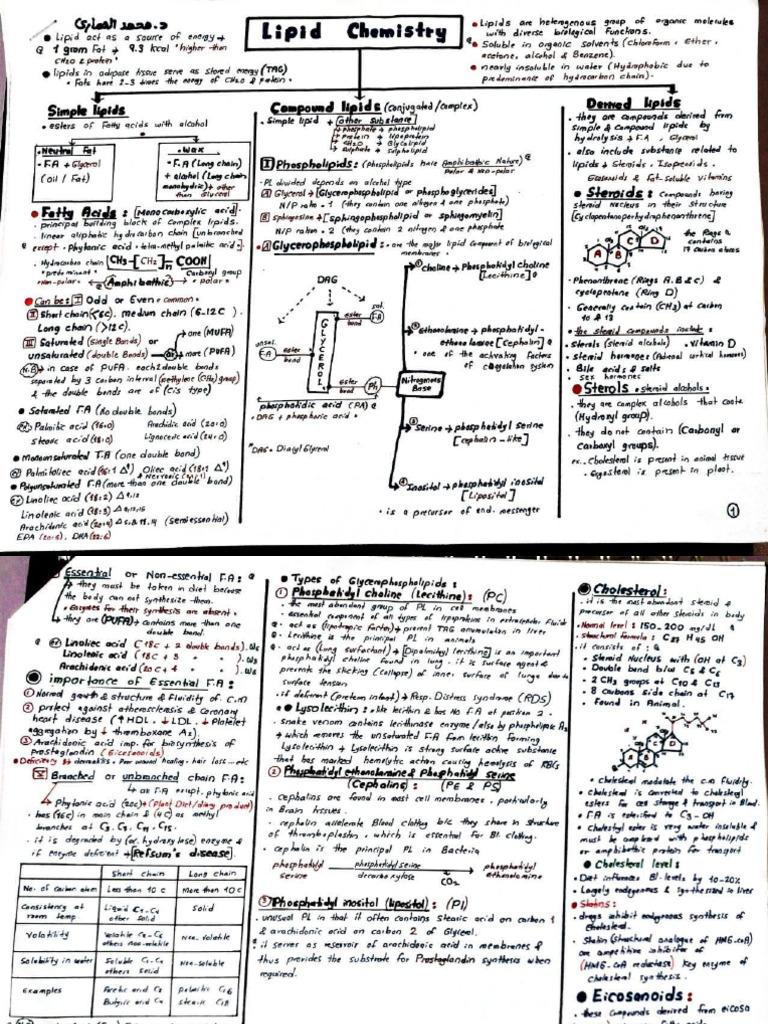 د. محمد العماري
Lipid Chemistry
• Lipid act as a source of energy →
1 gram Fat → 9.3 kcal "higher than
CH2O & protein"
• lipids in adipose tissue serve as stored energy (TAG)
• Fats have 2-3 times the energy of CH2O & protein.
• Lipids are heterogenous group of organic molecules
with diverse biological functions.
• Soluble in organic solvents (Chloroform, Ether,
acetone, alcohol & Benzene).
• nearly insoluble in water (Hydrophobic due to
predominance of hydrocarbon chain).
Simple lipids
• esters of Fatty acids with alcohol
• Neutral Fat
• F.A + Glycerol
(oil / Fat)
• Wax
• F.A (Long chain)
+ alcohol (Long chain,
monohydric) → other
than Glycerol
• Fatty Acids: [Monocarboxylic acid].
• principal building block of Complex lipids.
• linear aliphatic hydrocarbon chain [unbranched
except • Phytanic acid
• Hydrocarbon chain CH3-[CH2]n COOH
"predominant" Carboxyl group
• non-polar ← (Amphibathic) → • polar
• Can be: I Odd or Even • common
II Short chain (<6C), medium chain (6-12C).
Long chain (>12C).
III Saturated (Single Bonds) or one (MUFA)
unsaturated (double Bonds) more (PUFA)
N.B → in case of PUFA. each 2 double bonds
separated by 3 carbon interval (methylene (CH2) group)
& the double bonds are of (cis type)
• Saturated F.A (No double bonds)
Palmitic acid (16:0) Arachidic (20:0)
stearic acid (18:0) Lignoceric acid (24:0)
• Monounsaturated F.A (one double bond)
Palmitoliec acid (16:1 Δ9) Oliec acid (18:1 Δ9)
& Nervonic (24:1)
• Polyunsaturated F.A (more than one double bond)
Linoliec acid (18:2) Δ9,12
Linolenic acid (18:3) Δ9,12,15
Arachidonic acid (20:4) Δ5,8,11,14 (Semiessential)
EPA (20:5), DHA (22:6)
Compound lipids (conjugated/complex)
• Simple lipid + [other substance]
→ phosphate → phospholipid
→ Protein → lipoprotein
→ CH2O → Glycolipid
→ Sulphate → sulpholipid
I Phospholipids: (phospholipids have Amphibathic Nature)
Polar & Non-polar
• PL divided depends on alcohol type
Glycerol → [Glycerophospholipid or phosphoglycerides]
N/P ratio = 1 (they contain one nitrogen & one phosphate)
Sphingosine → [sphingophospholipid or sphingomyelin]
N/P ration = 2 (they contain 2 nitrogen & one phosphate
A Glycerophospholipid: • are the major lipid component of biological
membranes •
DAG
GLYCEROL
ester bond
sat.
FA
unsat.
FA
ester
bond
ester
bond
Ph
phosphatidic acid (PA)
• DAG + phosphoric acid •
DAG = Diacyl Glycerol
Nitrogenous
Base
① choline → Phosphatidyl Choline
[Lecithine]
② ethonolamine → phosphatidyl-
ethonolamine [Cephalin]
• one of the activating factors
of coagulation system
③ Serine → phosphatidyl serine
[cephalin-like]
④ Inositol → phosphatidyl inositol
[Lipositol]
• is a precursor of 2nd. messenger
Derived lipids
• they are compounds derived from
simple & compound lipids by
hydrolysis → F.A, Glycerol
• also include substance related to
lipids → Steroids. Isoprenoids.
Eicosanoids & Fat-soluble vitamins
• Steroids: Compounds having
steroid Nucleus in their structure
[Cyclopentanoperhydrophenanthrene]
A B C D
the Rings
contains
17 carbon atoms
• Phenanthrene (Rings A, B & C) &
cyclopentane (Ring D)
• Generally contain (CH3) at Carbon
10 & 13
• the steroid compounds include:
• Sterols (sterol alcohols) • vitamin D
• steroid hormones (Adrenal cortical hormones)
• Bile acids & salts
• sex hormones
• Sterols • steroid alcohols •
• they are complex alcohols that contain
(Hydroxyl group).
• they do not contain (Carbonyl or
Carboxyl groups).
ex.. Cholesterol is present in animal tissue
• Ergosterol is present in plant.
1
Essential or Non-essential F.A:
→ they must be taken in diet because
the body can not synthesize them.
• Enzymes for their synthesis are absent •
→ they are (PUFA) → contains more than one
double bond.
Linoliec acid (18C + 2 double bonds). W6
Linolenic acid (18C + 3 " ). W3
Arachidonic acid (20C + 4 " ). W6
importance of Essential F.A:
① Normal growth & structure & fluidity of C.M
② protect against atherosclerosis & Coronary
heart disease (↑HDL, ↓LDL, ↓Platelet
aggregation by ↓ thromboxane A2).
③ Arachidonic acid imp. for biosynthesis of
Prostaglandin (Eicosanoids)
• Deficiency → dermatitis, Poor wound healing, hair loss... etc
Branched or unbranched chain F.A:
→ all F.A except. phytanic acid
→ Phytanic acid (20C) → (Plant Diet/dairy product)
• has (16C) in main chain & (4C) as methyl
branches at C3, C7, C11, C15.
• it is degraded by (α. hydroxylase) enzyme &
if enzyme deficient → [Refsum's disease].
Short chain Long chain
No. of carbon atom Less than 10 C More than 10 C
Consistency at room temp Liquid others solid Solid
Volatility Volatile others non-volatile Non-volatile
Solubility in water Soluble others solid Non-soluble
Examples Acetic acid C2 Butyric acid C4 palmitic C16 stearic C18
• Types of Glycerophospholipids:
① Phosphatidyl choline (Lecithine): (PC)
• the most abundant group of PL in cell membranes
• essential component of all types of lipoprotein in extracellular fluid
• act as (lipotropic factor) → prevent TAG accumulation in liver
• Lecithine is the principal PL in animals
• act as (Lung surfactant) → [Dipalmityl lecithine] is an important
phosphatidyl choline found in lung. it is surface agent &
prevents the sticking (collapse) of inner surface of lungs due to
surface tension
• if deficient (preterm infant) → Resp. Distress syndrome (RDS)
• Lysolecithin: • like lecithin & has No F.A at position 2 •
• snake venom contains lecithinase enzyme / also by phospholipase A2
→ which removes the unsaturated F.A from lecithin forming
Lysolecithin → Lysolecithin is strong surface active substance
that has marked hemolytic action causing hemolysis of RBCs
② Phosphatidyl ethanolamine & Phosphatidyl serine
(Cephalins): (PE & PS)
• cephalins are found in most cell membranes, particularly
in Brain tissues.
• cephalin accelerate Blood clotting b/c they share in structure
of thromboplastin, which is essential for Bl. clotting.
• cephalin is the principal PL in Bacteria
phosphatidyl serine → phosphatidyl serine decarboxylase → phosphatidyl ethanolamine
CO2
③ Phosphatidyl inositol (lipositol): (PI)
• unusual PL in that it often contains Stearic acid on carbon 1
& arachidonic acid on carbon 2 of Glycerol.
• it serves as reservoir of arachidonic acid in membranes &
thus provides the substrate for Prostaglandin synthesis when
required.
Cholesterol:
• it is the most abundant steroid &
precursor of all other steroids in body
• Normal level: 150-200 mg/dL
• structural formula: C27 H45 OH
• it consists of:
• Steroid Nucleus with (OH at C3)
• Double bond b/w C5 & C6
• 2 CH3 groups at C10 & C13
• 8 carbons side chain at C17
• found in Animal.
• cholesterol modulate the C.M fluidity.
• cholesterol is converted to cholesteryl
esters for cell storage & transport in Blood.
• F.A is esterified to C3-OH
• Cholesteryl ester is very water insoluble &
must be complexed with phospholipids
or amphibathic protein for transport
• Cholesterol level:
• Diet influences Bl. levels by 10-20%
• Largely endogenous & synthesized in liver
• Statins:
• drugs inhibit endogenous synthesis of
Cholesterol.
• Statin (Structural analogue of HMG-CoA)
are competitive inhibitor of
(HMG-CoA reductase) Key enzyme of
cholesterol synthesis.
• Eicosanoids:
• these compounds derived from eicosa